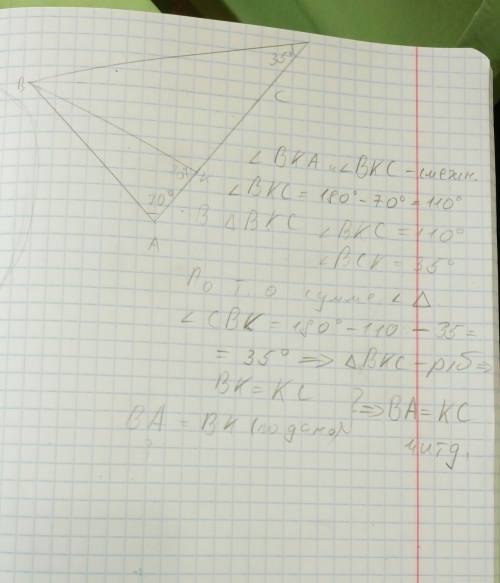 35°
B
C
K
70°
A
∠BKA и ∠BKC - смежн.
∠BKC = 180° - 70° = 110°
В △BKC ∠BKC = 110°
∠BCK = 35°
По т. о сумме ∠ △
∠CBK = 180° - 110 - 35 =
= 35° => △BKC - р/б =>
BK = KC
=> BA = KC
BA = BK (по дано)
читд.